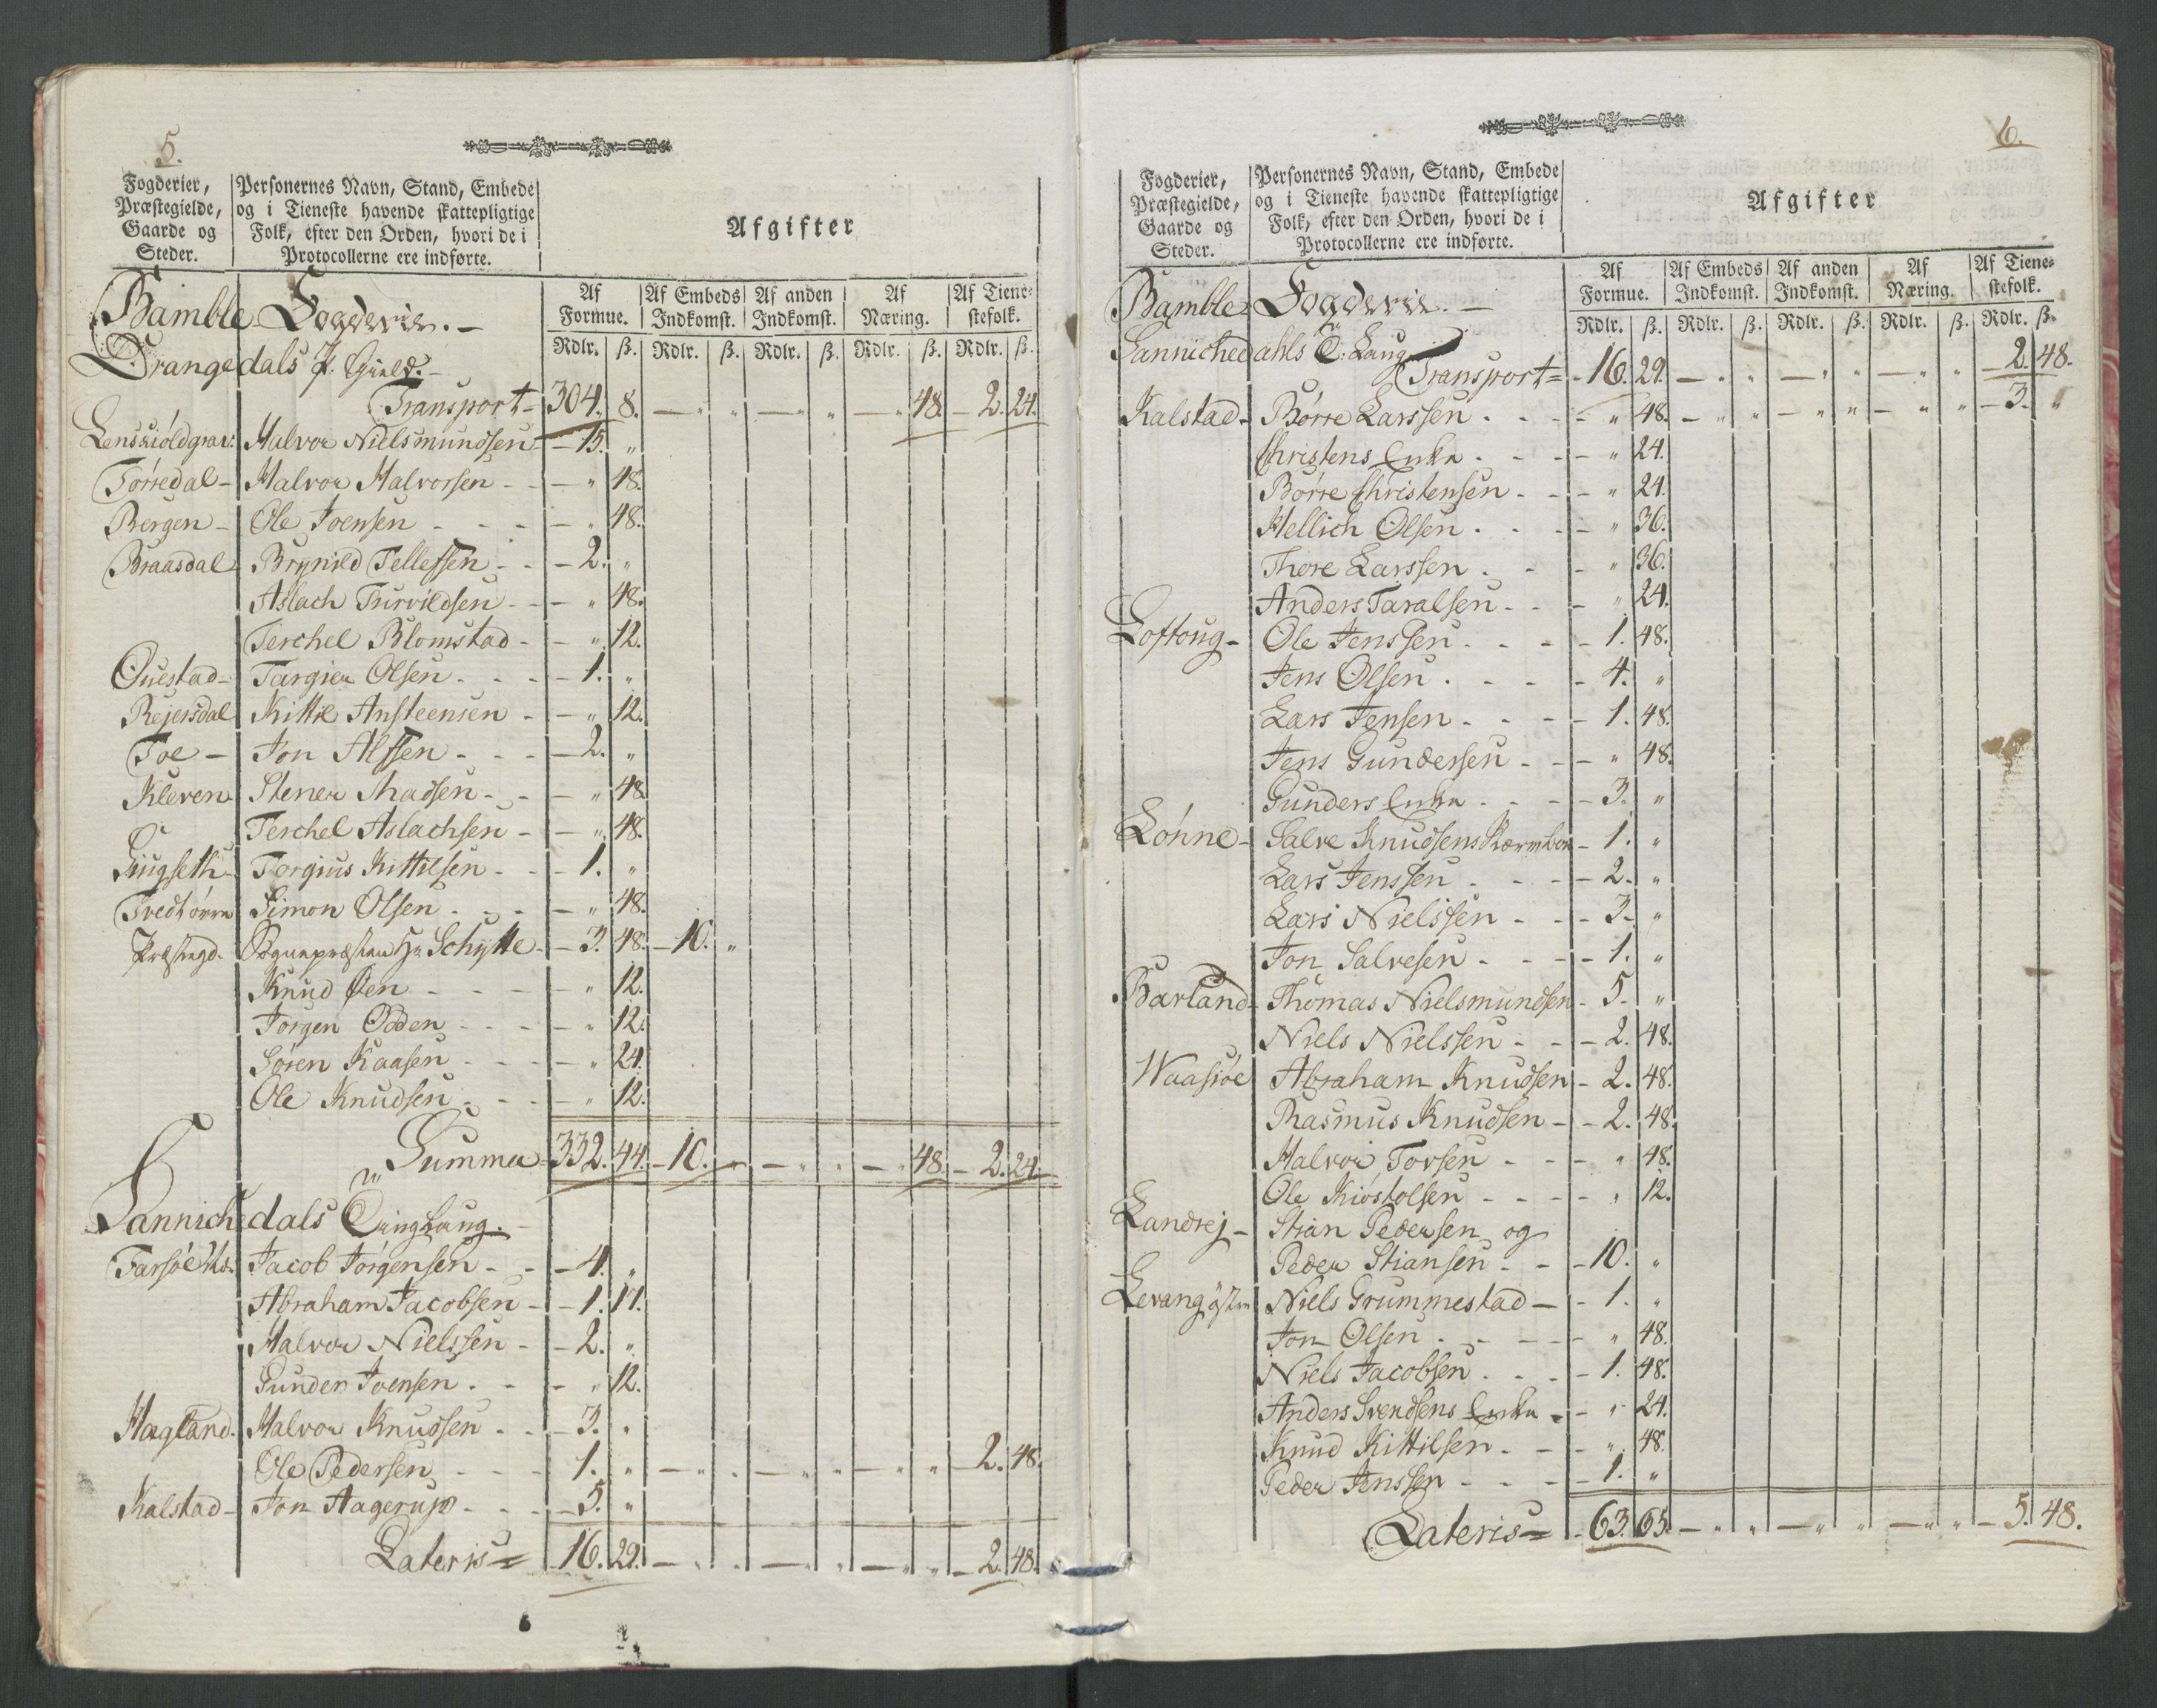 5.
Fogderier, Præstegielde, Gaarde og Steder. | Personernes Navn, Stand, Embede og i Tieneste havende skattepligtige Folk, efter den Orden, hvori de i Protocollerne ere indførte. | Afgifter
Af Formue. | Af Embeds Indkomst. | Af anden Indkomst. | Af Næring. | Af Tienestefolk.
Rdlr. | ß. | Rdlr. | ß. | Rdlr. | ß. | Rdlr. | ß. | Rdlr. | ß.
Bamble Fogderie. —
Drangedals P. Gield. —
Transport - 304. 8. — " " — " " — " 48. — 2. 24.
Halvor Nielsmundsen - 15. "
Tørredal - Halvor Halvorsen - - — " 48.
Bergen - Ole Joensen - - - — " 48.
Braasdal Brynild Tellefsen - - — 2. "
Aslach Turvildsen - - — " 48.
Terchel Blomstad - — " 12.
Øuestad - Targier Olsen - - - — 1. "
Rejersdal Kittil Ansteensen - — " 12.
Toe - Jon Alfsen - - - — 2. "
Kleven Stener Madsen - - — " 48
Terchel Aslachsen - — " 48.
Giugseth - Torgius Kittilsen - - — 1. "
Simon Olsen - - - — " 48.
Præstegd. Sognepræsten Hr Schytte - — 3. 48. — 10. "
Knud Øen - - - — " 12.
Jørgen Odden - - - — " 12.
Søren Kaasen - - - — " 24.
Ole Knudsen - - - — " 12.
Summa 332. 44. — 10. " — " " — " 48. — 2. 24.
Sannichedals Tinglaug. —
Farsøe Jacob Jørgensen - - — 4. "
Abraham Jacobsen - — 1. 17.
Halvor Nielssen - — 2. "
Gunder Joensen - - — " 12.
Hagland. Halvor Knudsen - - — 3. "
Ole Pedersen - - - 1. " — " " — " " — " " — 2. 48.
Kalstad - Jon Aagerup - - - — 5. "
Lateris = 16. 29. — " " — " " — " " — 2. 48.
6.
Fogderier, Præstegielde, Gaarde og Steder. | Personernes Navn, Stand, Embede og i Tieneste havende skattepligtige Folk, efter den Orden, hvori de i Protocollerne ere indførte. | Afgifter
Af Formue. | Af Embeds Indkomst. | Af anden Indkomst. | Af Næring. | Af Tienestefolk.
Rdlr. | ß. | Rdlr. | ß. | Rdlr. | ß. | Rdlr. | ß. | Rdlr. | ß.
Bamble Fogderie. —
Sannichedahls T: Laug
Transport = - 16. 29. — " " — " " — " " — 2. 48.
Kalstad - Børre Larssen - - - — " 48. — " " — " " — " " — 3. "
Christens Enke - - - — " 24.
Børre Christensen - - — " 24.
Hellich Olsen - - - — " 36.
Thore Larssen - - - — " 36.
Anders Taralsen - - — " 24.
Loftoug - Ole Jenssen - - - — 1. 48.
Jens Olsen - - - — 4. "
Lars Jensen - - - — 1. 48.
Jens Gundersen - - — " 48.
Gunders Enke - - - — 3. "
Lønne - Salve Knudsens — 1. "
Lars Jenssen - - - — 2. "
Lars Nielssen - - - — 3. "
Jon Salvesen - - - — 1. "
Barland - Thomas Nielsmundsen - 5. "
Niels Nielssen - - — 2. 48.
Waasiøe Abraham Knudsen - 2. 48.
Rasmus Knudsen - — 2. 48.
Halvor Torsen - - — " 48.
Ole Kiøstolsen - - - — " 12.
Landrej - Stian Pedersen og
Peder Stiansen - - — 10. "
Levang østre Niels Grummestad — - 1. "
Jon Olsen - - - — " 48.
Niels Jacobsen - - - — 1. 48.
Anders Svendsens Enke - — " 24.
Knud Kittilsen - - — " 48.
Peder Jenssen - - - — 1. "
Lateris = - 63. 65. — " " — " " — " " — 5. 48.